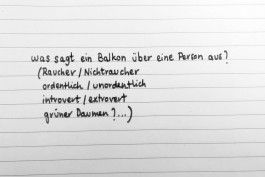 was sagt ein Balkon über eine Person aus?
(Raucher/Nichtraucher
ordentlich/unordentlich
introvert/extrovert
grüner Daumen?...)